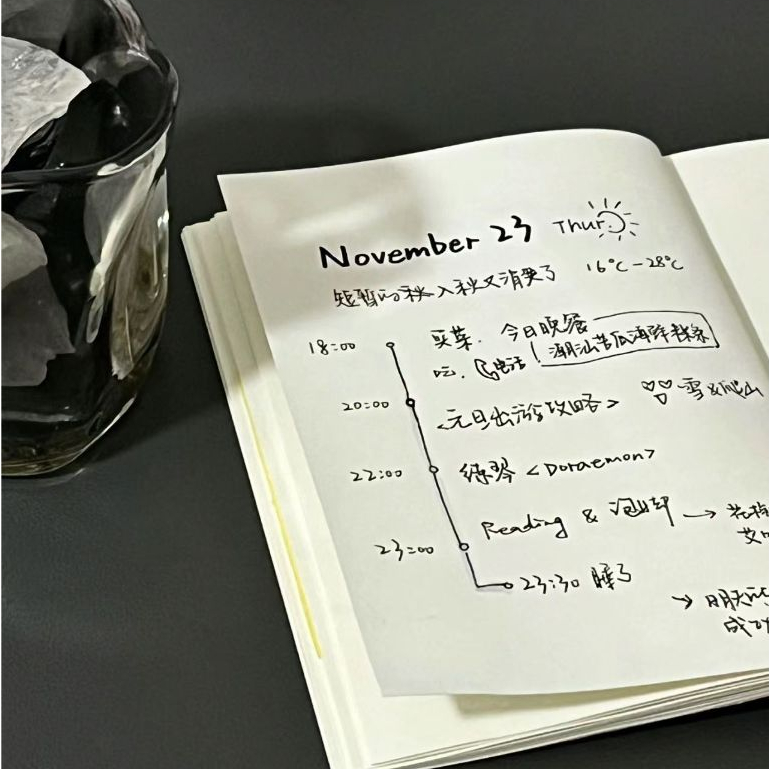 November 23 Thur.
短暂的秋入秋又消失了 16°C-28°C
18:00 买菜. 今日晚餐
吃. 电话 潮汕苦瓜海鲜粿条
20:00 <元旦出游攻略> 雪&爬山
22:00 练琴 <Doraemon>
23:00 Reading & 泡脚 →
23:30 睡了
→ 明天
成功